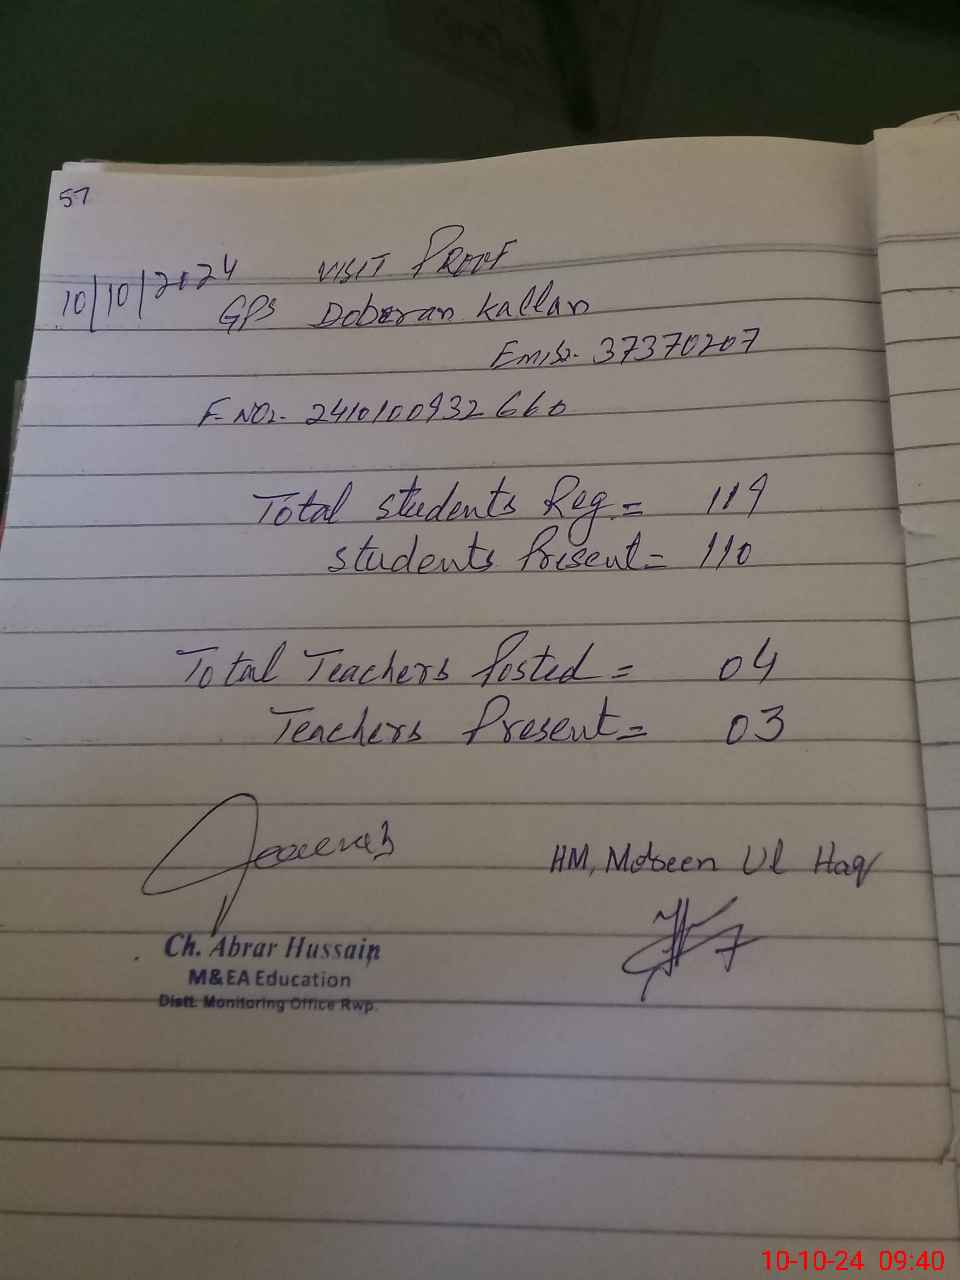 57
10/10/2024 VISIT PROOF
GPS Doberan Kallan
Emis:- 37370207
F-NO:- 2410100932660
Total students Reg = 119
students Present = 110
Total Teachers Posted = 04
Teachers Present = 03
HM, Mobeen Ul Haq
Ch. Abrar Hussain
M&EA Education
Distt. Monitoring Office Rwp.
10-10-24 09:40